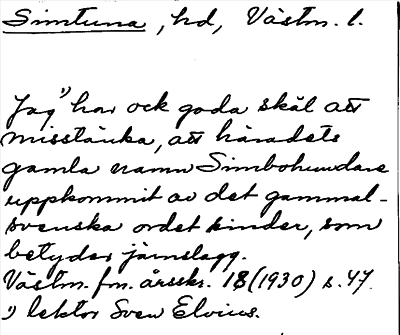 Simtuna, hd, Västm. l.
Jag¹⁾ har ock goda skäl att
misstänka, att häradets
gamla namn Simbohundare
uppkommit av det gammal-
svenska ordet sinder, som
betyder järnslagg.
Västm. fm. årsskr. 18 (1930) s. 47.
¹⁾ lektor Sven Elvius.